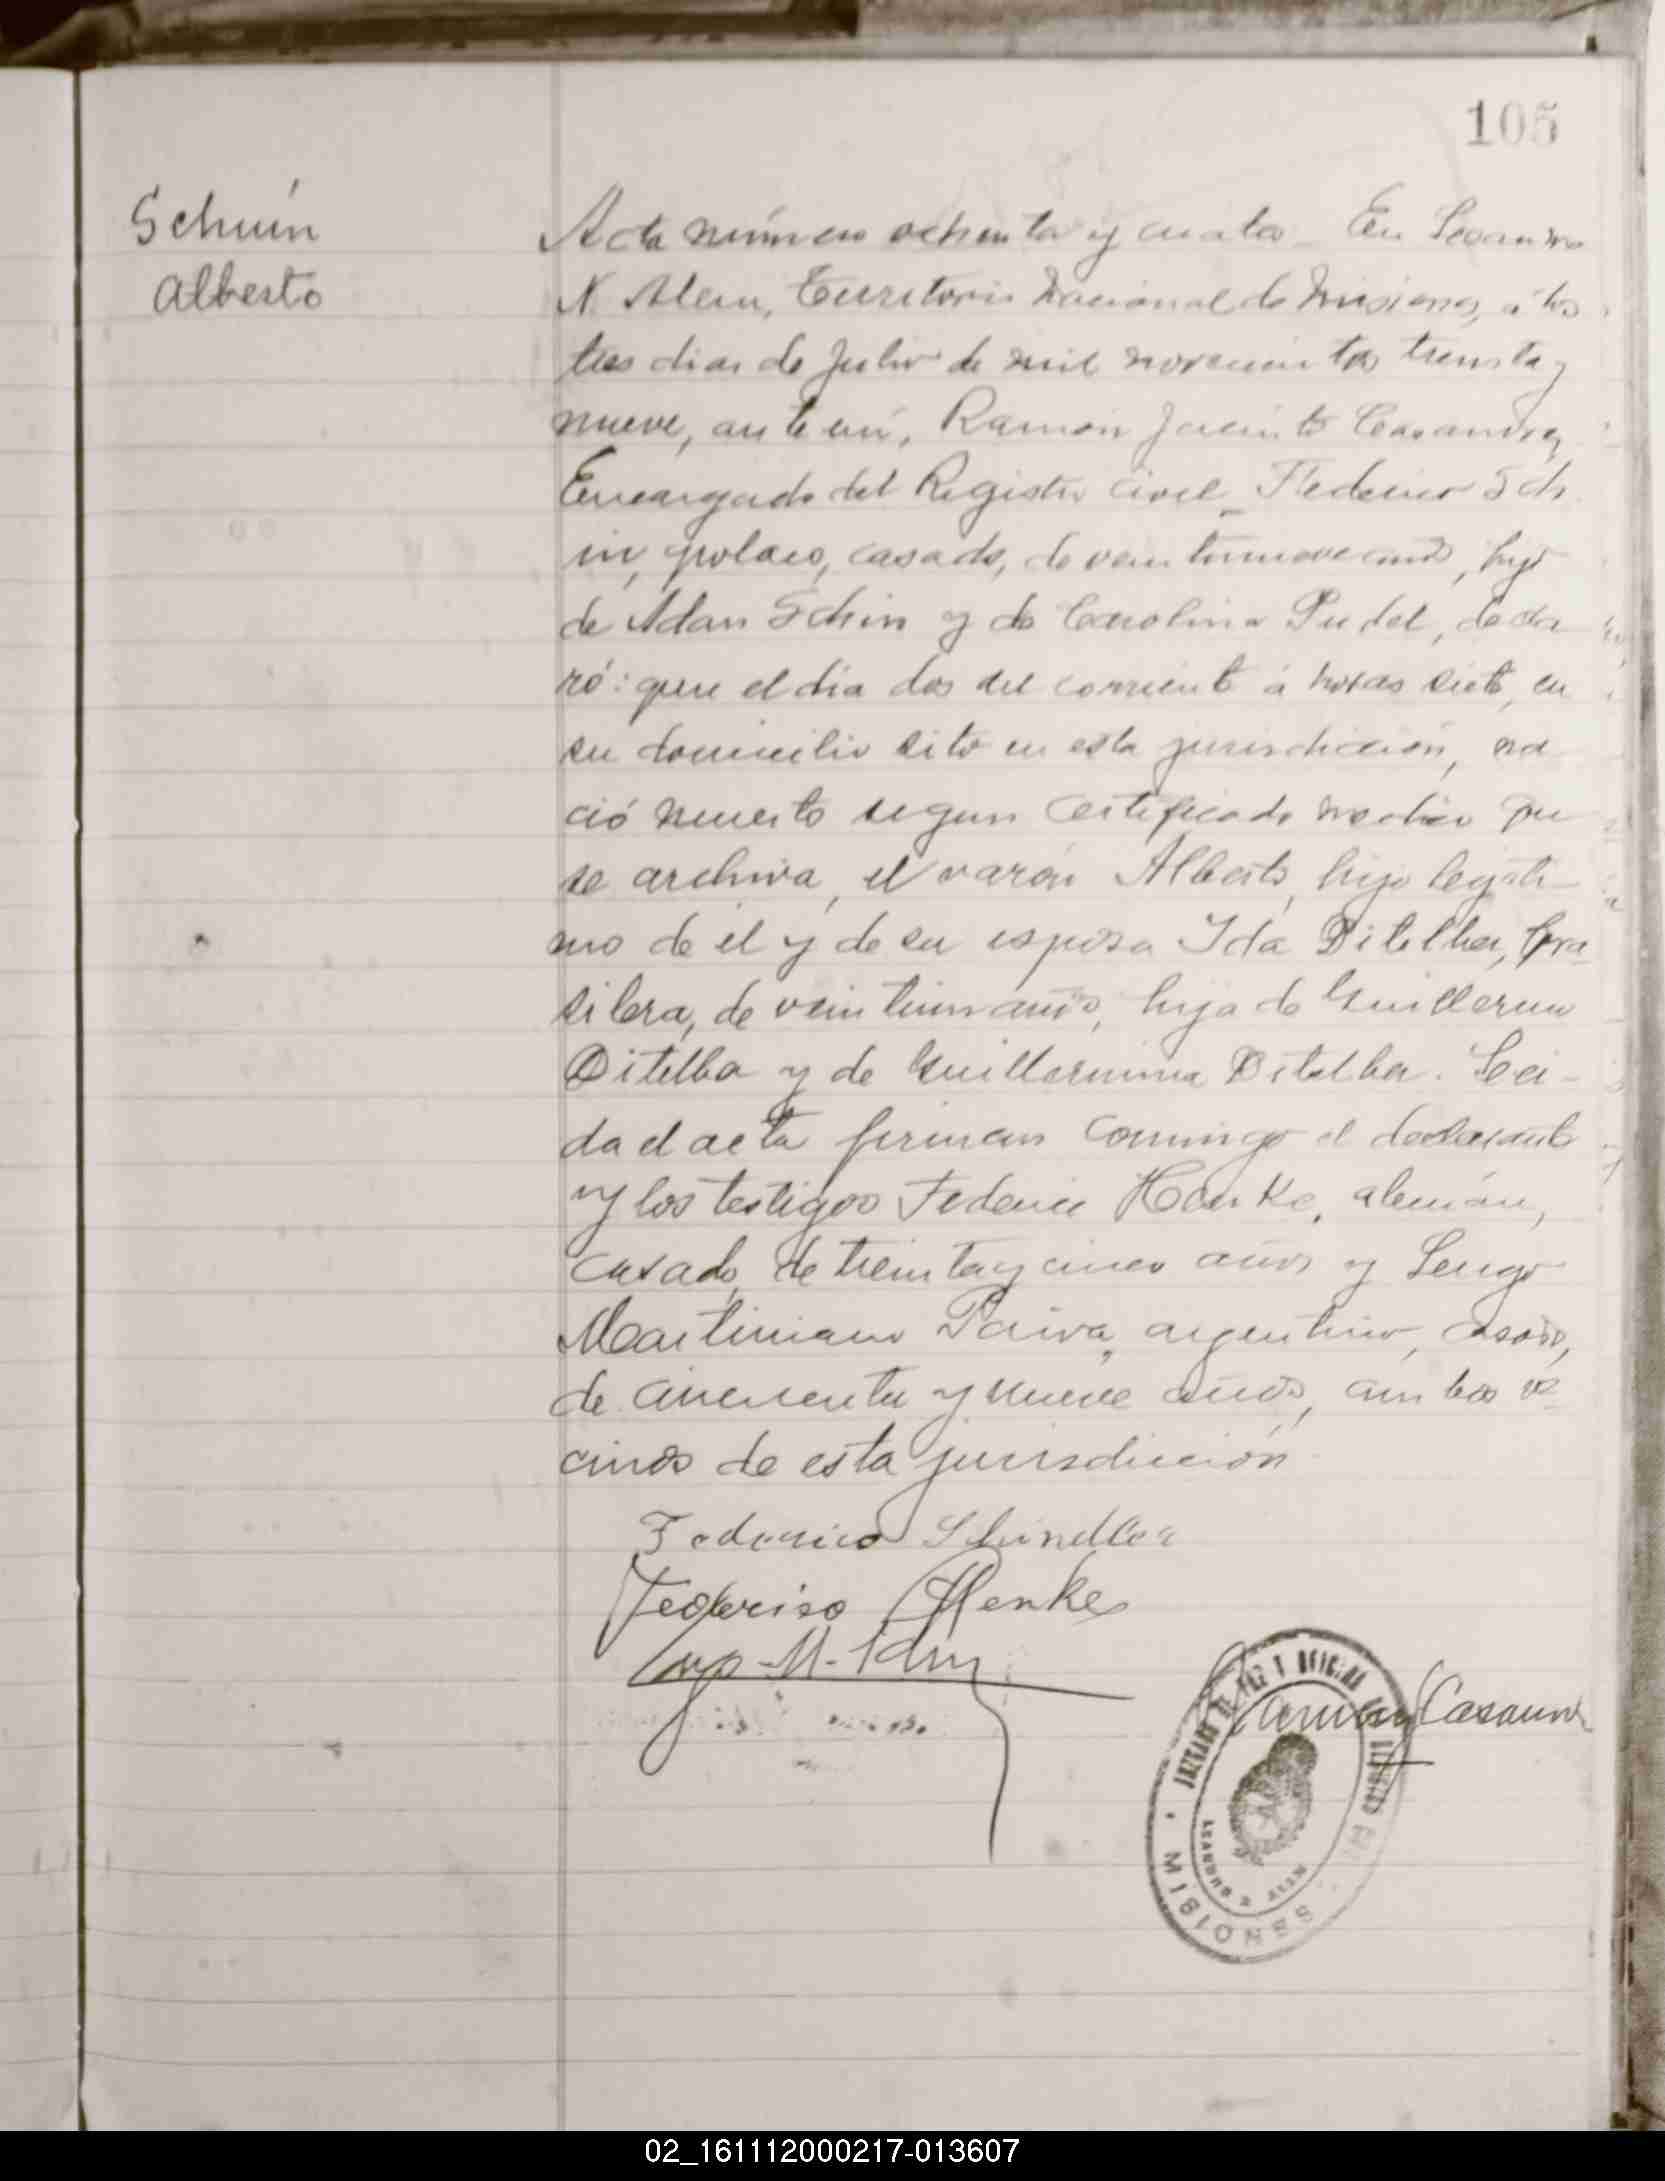 105
Schuin
Alberto
Acta número ochenta y cuatro. En Leandro
N. Alem, Territorio Nacional de Misiones, á los
tres dias de Julio de mil novecientos treinta y
nueve, ante mí, Ramón Jacinto
Encargado del Registro Civil, Federico Sch
in, polaco, casado, de veintinueve años, hijo
de Adan Schin y de Carolina Pudel, decla
ró: que el dia dos del corriente á horas siete, en
su domicilio sito en esta jurisdicción, na
ció muerto segun certificado medico que
se archiva, el varón Alberto, hijo legiti-
mo de el y de su esposa Ida Ditelba, bra-
silera, de veintiun años, hija de Guillermo
Ditelba y de Guillermina Ditelba. Lei-
da el acta firman conmigo el declarante
y los testigos Federico Henke, alemán,
casado, de treinta y cinco años y Lengo
Martiniano Paiva, argentino, casado,
de cincuenta y nueve años, ambos ve-
cinos de esta jurisdicción.
Federico Schindler
Federiso Henke
M.
Casaun
JUZGADO DE PAZ Y OFICINA DEL REGISTRO CIVIL
LEANDRO N. ALEM
MISIONES
02_161112000217-013607